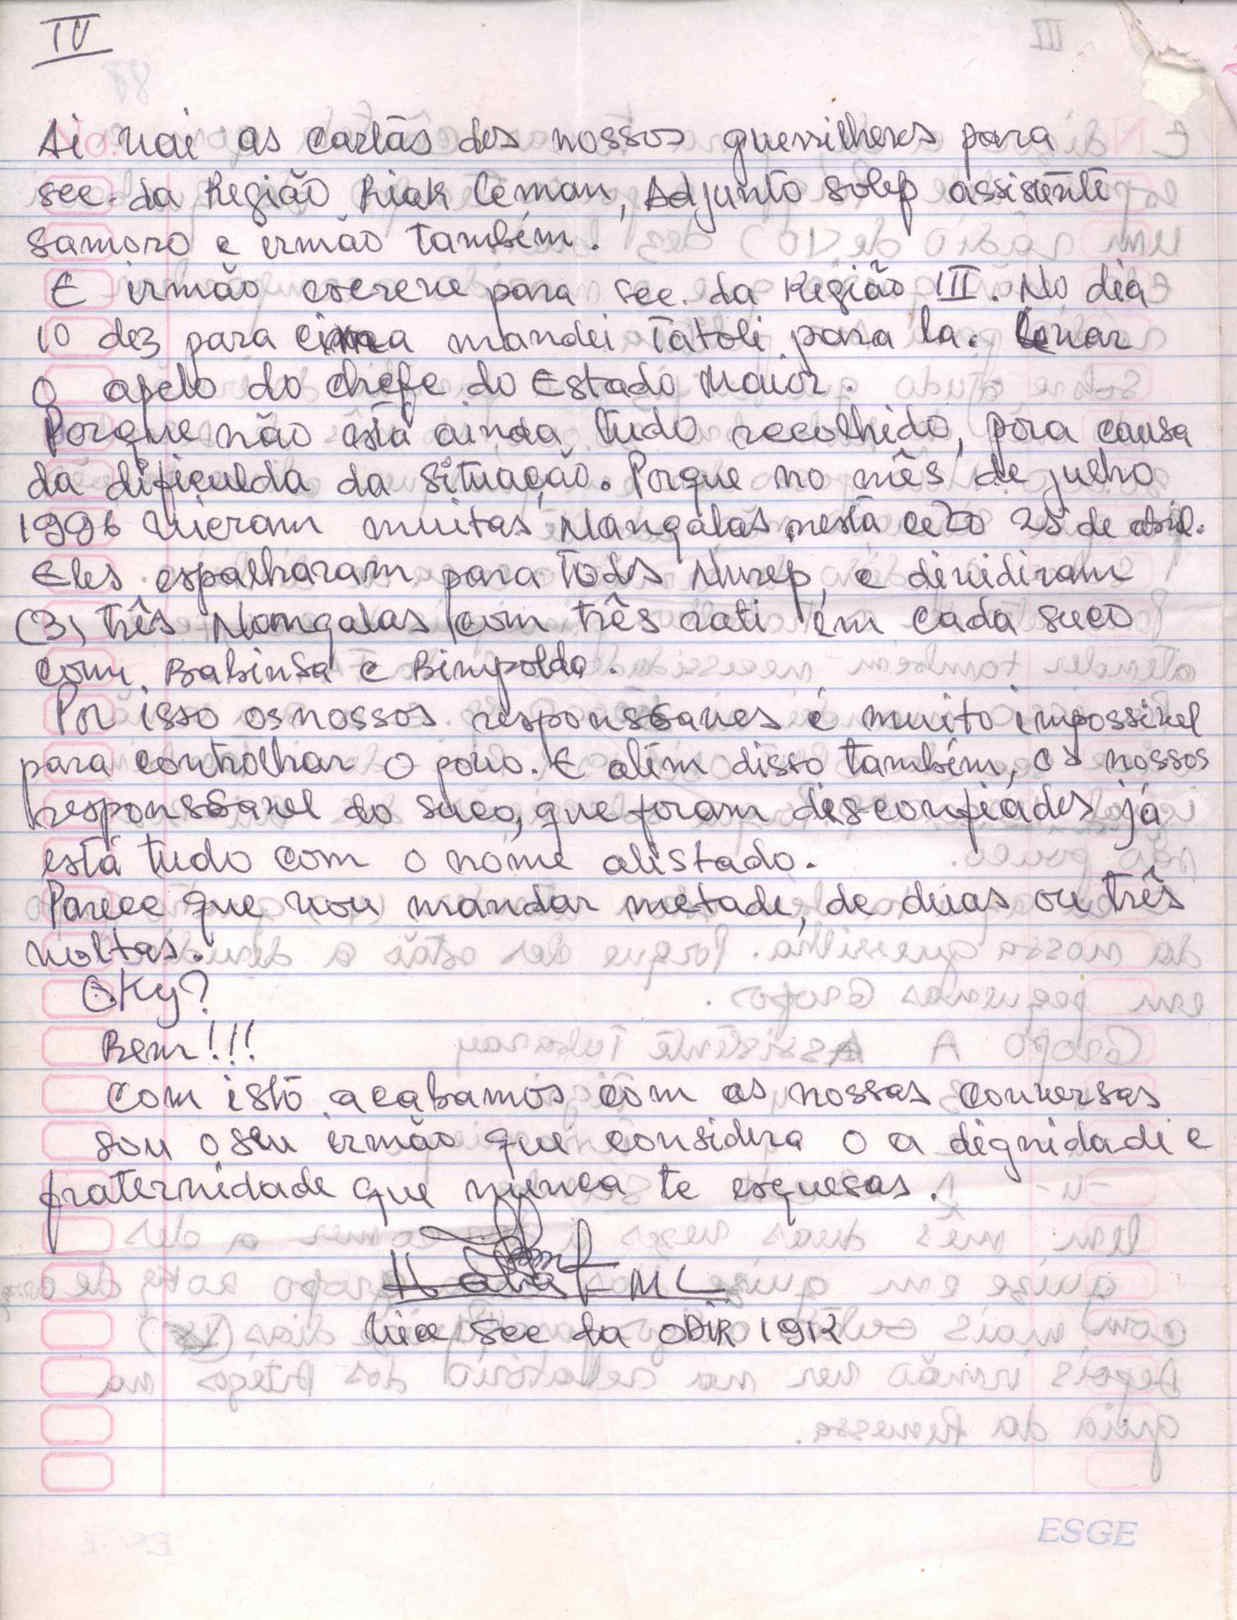 IV
Ai vai as cartas dos nossos guerrilheros para
sec. da Região Riak Leman, Adjunto solep assistente
Samoro e irmão também.
E irmão escreve para sec. da Região III. No dia
10 dez para cima mandei Tatoli para la. levar
O apelo do chefe do Estado Maior.
Porque não está ainda tudo recolhido, pora causa
da dificulda da situação. Porque no mês de julho
1996 vieram muitas, Nangalas nesta 25 de abril.
Eles espalharam para todos Nurep, e dividiram
(3) três Nangalas com três rati em cada suco
com Babinsa e Bimpolda.
Por isso os nossos responsaves é muito impossivel
para controlhar o povo. E além disso também, os nossos
responsavel do suco, que foram desconfiados já
está tudo com o nome alistado.
Parece que vou mandar metade, de duas ou três
voltas.
Oky?
Bem!!!
Com isto acabamos com as nossas conversas
sou o seu irmão que considera o a dignidade e
fraternidade que nunca te esquesas.
Vice Sec da 1912
ESGE